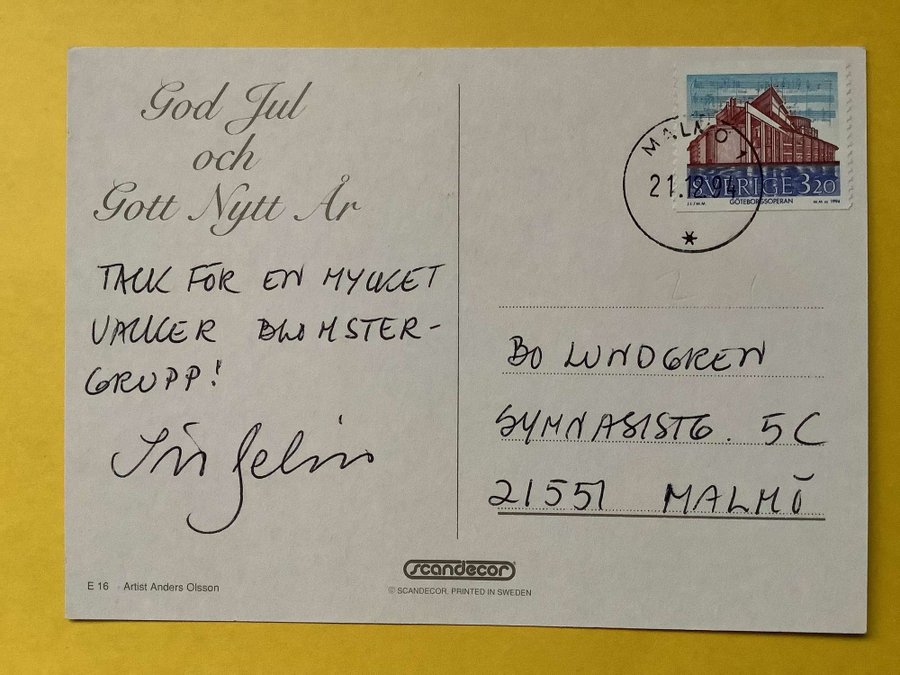 God Jul
och
Gott Nytt År
TACK FÖR EN MYCKET
VACKER BLOMSTER-
GRUPP!
E 16 Artist Anders Olsson
scandecor
© SCANDECOR, PRINTED IN SWEDEN
MALMÖ 1
21.12.94
SVERIGE 320
GÖTEBORGSOPERAN
1994
BO LUNDGREN
GYMNASISTG. 5C
21551 MALMÖ